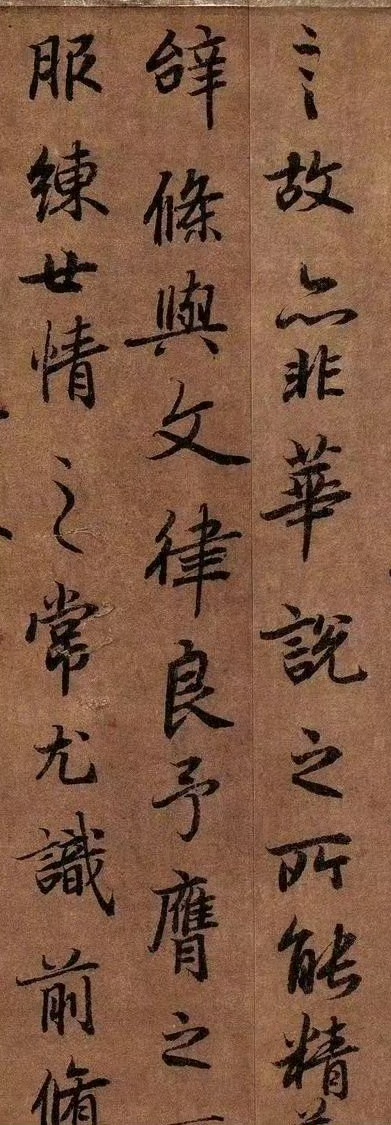 言故亦非華說之所能精
辝條與文律良予膺之
服練世情之常尤識前脩